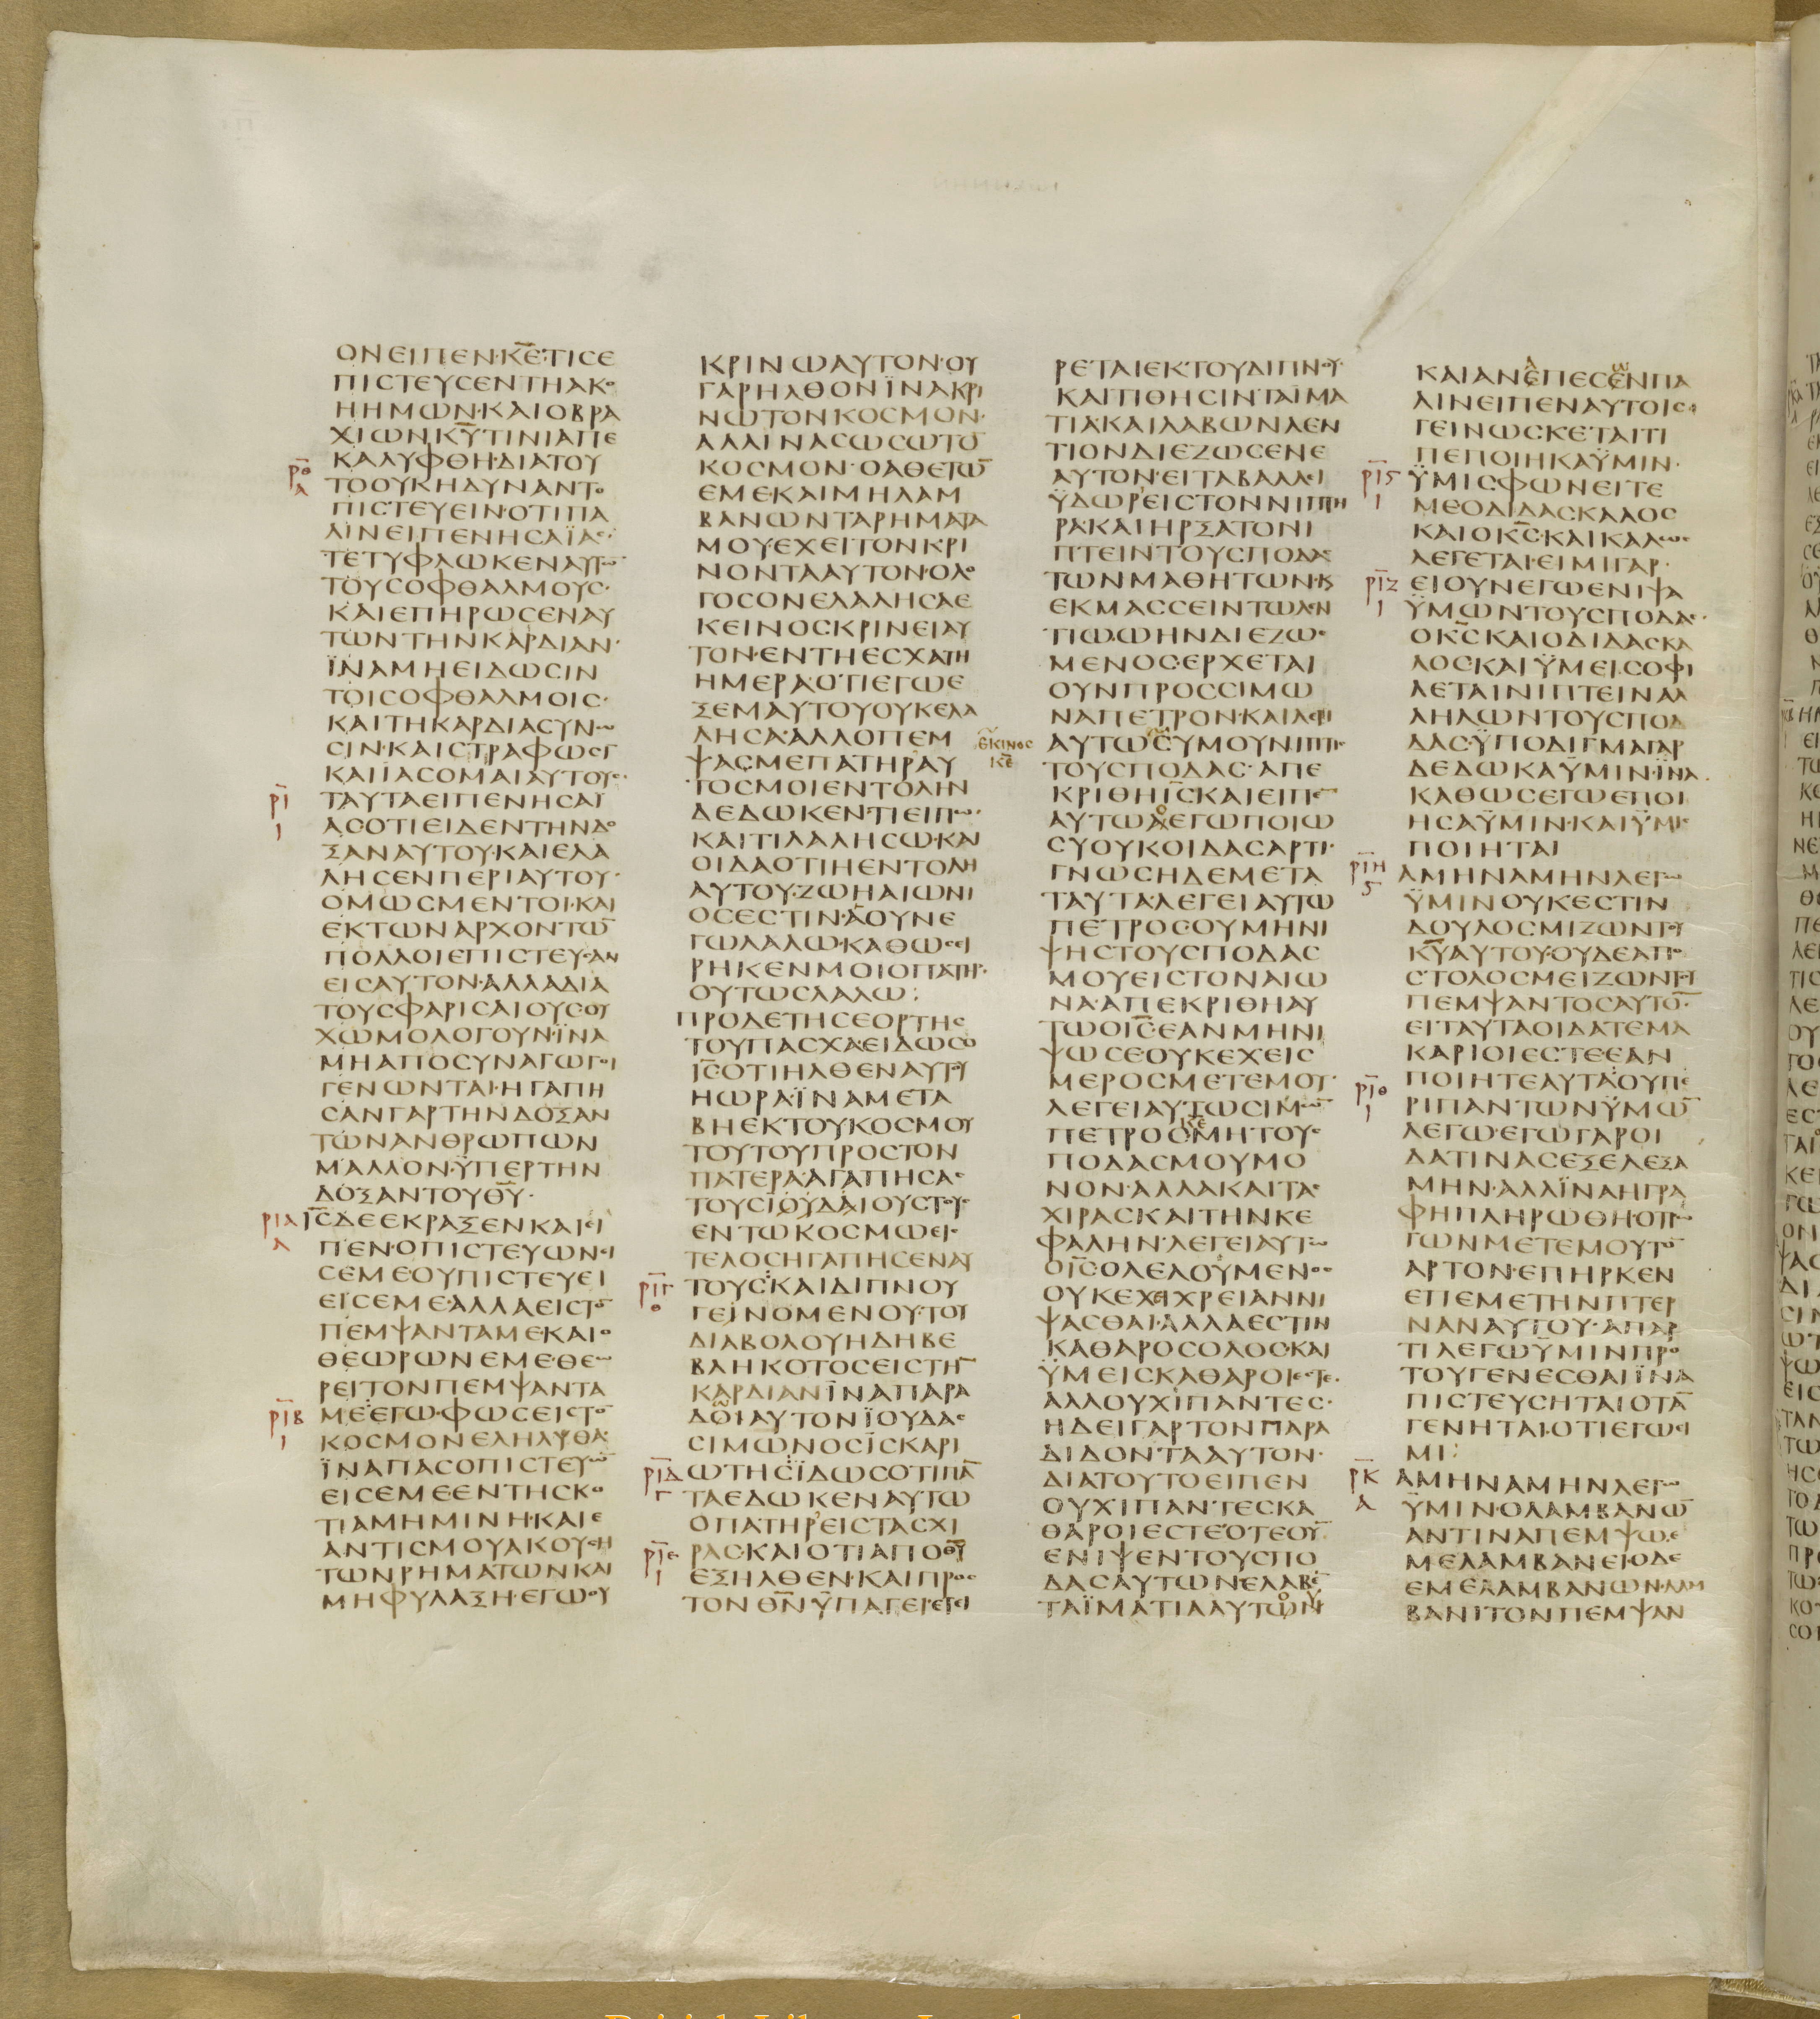 ΟΝΕΙΠΕΝ·Κ̅Ε̅·ΤΙϹΕ
ΠΙϹΤΕΥϹΕΝΤΗΑΚΟ
ΗΗΜΩΝ·ΚΑΙΟΒΡΑ
ΧΙΩΝΚ̅Υ̅ΤΙΝΙΑΠΕ
ΚΑΛΥΦΘΗ·ΔΙΑΤΟΥ
ΡΘ
Α
ΤΟΟΥΚΗΔΥΝΑΝΤΟ
ΠΙϹΤΕΥΕΙΝ·ΟΤΙΠΑ
ΛΙΝΕΙΠΕΝΗϹΑΪΑϹ·
ΤΕΤΥΦΛΩΚΕΝΑΥΤΩ̅
ΤΟΥϹΟΦΘΑΛΜΟΥϹ·
ΚΑΙΕΠΗΡΩϹΕΝΑΥ
ΤΩΝΤΗΝΚΑΡΔΙΑΝ·
ΪΝΑΜΗΕΙΔΩϹΙΝ
ΤΟΙϹΟΦΘΑΛΜΟΙϹ·
ΚΑΙΤΗΚΑΡΔΙΑϹΥΝΩ
ϹΙΝ·ΚΑΙϹΤΡΑΦΩϹΙ
ΚΑΙΪΑϹΟΜΑΙΑΥΤΟΥϹ·
ΡΙ
Ι
ΤΑΥΤΑΕΙΠΕΝΗϹΑΪ
ΑϹΟΤΙΕΙΔΕΝΤΗΝΔΟ
ΞΑΝΑΥΤΟΥ·ΚΑΙΕΛΑ
ΛΗϹΕΝΠΕΡΙΑΥΤΟΥ·
ΟΜΩϹΜΕΝΤΟΙ·ΚΑΙ
ΕΚΤΩΝΑΡΧΟΝΤΩ̅
ΠΟΛΛΟΙΕΠΙϹΤΕΥϹΑΝ
ΕΙϹΑΥΤΟΝ·ΑΛΛΑΔΙΑ
ΤΟΥϹΦΑΡΙϹΑΙΟΥϹΟΥ
ΧΩΜΟΛΟΓΟΥΝ·ΪΝΑ
ΜΗΑΠΟϹΥΝΑΓΩΓΟΙ
ΓΕΝΩΝΤΑΙ·ΗΓΑΠΗ
ϹΑΝΓΑΡΤΗΝΔΟΞΑΝ
ΤΩΝΑΝΘΡΩΠΩΝ
ΜΑΛΛΟΝ·ΫΠΕΡΤΗΝ
ΔΟΞΑΝΤΟΥΘ̅Υ̅·
ΡΙΑ
Α
Ι̅Ϲ̅ΔΕΕΚΡΑΞΕΝΚΑΙΕΙ
ΠΕΝ·ΟΠΙϹΤΕΥΩΝ·ΕΙ
ϹΕΜΕ·ΟΥΠΙϹΤΕΥΕΙ
ΕΙϹΕΜΕ·ΑΛΛΑΕΙϹΤΟ̅
ΠΕΜΨΑΝΤΑΜΕ·ΚΑΙΟ
ΘΕΩΡΩΝΕΜΕ·ΘΕΩ
ΡΕΙΤΟΝΠΕΜΨΑΝΤΑ
ΡΙΒ
Ι
ΜΕ·ΕΓΩ·ΦΩϹΕΙϹΤΟ̅
ΚΟϹΜΟΝΕΛΗΛΥΘΑ·
ΪΝΑΠΑϹΟΠΙϹΤΕΥΩ̅
ΕΙϹΕΜΕΕΝΤΗϹΚΟ
ΤΙΑΜΗΜΙΝΗ·ΚΑΙΕ
ΑΝΤΙϹΜΟΥΑΚΟΥϹΗ
ΤΩΝΡΗΜΑΤΩΝΚΑΙ
ΜΗΦΥΛΑΞΗ·ΕΓΩΟΥ
ΚΡΙΝΩΑΥΤΟΝ·ΟΥ
ΓΑΡΗΛΘΟΝΪΝΑΚΡΙ
ΝΩΤΟΝΚΟϹΜΟΝ·
ΑΛΛΙΝΑϹΩϹΩΤΟ̅
ΚΟϹΜΟΝ·ΟΑΘΕΤΩ̅
ΕΜΕ·ΚΑΙΜΗΛΑΜ
ΒΑΝΩΝΤΑΡΗΜΑΤΑ
ΜΟΥ·ΕΧΕΙΤΟΝΚΡΙ
ΝΟΝΤΑΑΥΤΟΝ·ΟΛΟ
ΓΟϹΟΝΕΛΑΛΗϹΑΕ
ΚΕΙΝΟϹΚΡΙΝΕΙΑΥ
ΤΟΝ·ΕΝΤΗΕϹΧΑΤΗ
ΗΜΕΡΑ·ΟΤΙΕΓΩΕ
ΞΕΜΑΥΤΟΥΟΥΚΕΛΑ
ΛΗϹΑ·ΑΛΛΟΠΕΜ
ΨΑϹΜΕΠΑΤΗΡ·ΑΥ
ΤΟϹΜΟΙΕΝΤΟΛΗΝ
ΔΕΔΩΚΕΝ·ΤΙΕΙΠΩ·
ΚΑΙΤΙΛΑΛΗϹΩ·ΚΑΙ
ΟΙΔΑΟΤΙΗΕΝΤΟΛΗ
ΑΥΤΟΥ·ΖΩΗΑΙΩΝΙ
ΟϹΕϹΤΙΝ·ΑΟΥΝΕ
ΓΩΛΑΛΩ·ΚΑΘΩϹΕΙ
ΡΗΚΕΝΜΟΙΟΠΑΤΗΡ·
ΟΥΤΩϹΛΑΛΩ:
ΠΡΟΔΕΤΗϹΕΟΡΤΗϹ
ΤΟΥΠΑϹΧΑ·ΕΙΔΩϹΟ
Ι̅Ϲ̅ΟΤΙΗΛΘΕΝΑΥΤΟΥ
ΗΩΡΑ·ΪΝΑΜΕΤΑ
ΒΗΕΚΤΟΥΚΟϹΜΟΥ
ΤΟΥΤΟΥΠΡΟϹΤΟΝ
ΠΑΤΕΡΑ·ΑΓΑΠΗϹΑϹ
ΤΟΥϹΙΟΥΔΑΙΟΥϹΤΟΥϹ
ΕΝΤΩΚΟϹΜΩΕΙϹ
ΤΕΛΟϹΗΓΑΠΗϹΕΝΑΥ
ΡΙΓ
Θ
ΤΟΥϹ·ΚΑΙΔΙΠΝΟΥ
ΓΕΙΝΟΜΕΝΟΥ·ΤΟΥ
ΔΙΑΒΟΛΟΥΗΔΗΒΕ
ΒΛΗΚΟΤΟϹΕΙϹΤΗ̅
ΚΑΡΔΙΑΝΪΝΑΠΑΡΑ
ΔΟΙΑΥΤΟΝΪΟΥΔΑϹ
ϹΙΜΩΝΟϹΙϹΚΑΡΙ
ΡΙΔ
Γ
ΩΤΗϹ·ΪΔΩϹΟΤΙΠΑ̅
ΤΑΕΔΩΚΕΝΑΥΤΩ
ΟΠΑΤΗΡ·ΕΙϹΤΑϹΧΙ
ΡΙΕ
Ι
ΡΑϹ·ΚΑΙΟΤΙΑΠΟΘ̅Υ̅
ΕΞΗΛΘΕΝ·ΚΑΙΠΡΟϹ
ΤΟΝΘ̅Ν̅ΫΠΑΓΕΙ·ΕΓΕΙ
ΡΕΤΑΙΕΚΤΟΥΔΙΠΝΟΥ·
ΚΑΙΤΙΘΗϹΙΝΤΑΪΜΑ
ΤΙΑΚΑΙΛΑΒΩΝΛΕΝ
ΤΙΟΝΔΙΕΖΩϹΕΝΕ
ΑΥΤΟΝ·ΕΙΤΑΒΑΛΛΕΙ
ΫΔΩΡΕΙϹΤΟΝΝΙΠΤΗ
ΡΑΚΑΙΗΡΞΑΤΟΝΙ
ΠΤΕΙΝΤΟΥϹΠΟΔΑϹ
ΤΩΝΜΑΘΗΤΩΝ·Κ
ΕΚΜΑϹϹΕΙΝΤΩΛΕΝ
ΤΙΩΩΗΝΔΙΕΖΩϹ
ΜΕΝΟϹ·ΕΡΧΕΤΑΙ
ΟΥΝΠΡΟϹϹΙΜΩ
ΝΑΠΕΤΡΟΝ·ΚΑΙΛΕΓΙ
ΕΚΙΝΟϹ
Κ̅Ε̅
ΑΥΤΩϹΥΜΟΥΝΙΠΤΙϹ
ΤΟΥϹΠΟΔΑϹ·ΑΠΕ
ΚΡΙΘΗΙ̅Ϲ̅ΚΑΙΕΙΠΕ̅
ΑΥΤΩΑΕΓΩΠΟΙΩ
ϹΥΟΥΚΟΙΔΑϹΑΡΤΙ·
ΓΝΩϹΗΔΕΜΕΤΑ
ΤΑΥΤΑ·ΛΕΓΕΙΑΥΤΩ
ΠΕΤΡΟϹΟΥΜΗΝΙ
ΨΗϹΤΟΥϹΠΟΔΑϹ
ΜΟΥΕΙϹΤΟΝΑΙΩ
ΝΑ·ΑΠΕΚΡΙΘΗΑΥ
ΤΩΟΙ̅Ϲ̅·ΕΑΝΜΗΝΙ
ΨΩϹΕΟΥΚΕΧΕΙϹ
ΜΕΡΟϹΜΕΤΕΜΟΥ·
ΛΕΓΕΙΑΥΤΩϹΙΜΩ̅
Κ̅Ε̅
ΠΕΤΡΟϹΜΗΤΟΥϹ
ΠΟΔΑϹΜΟΥΜΟ
ΝΟΝ·ΑΛΛΑΚΑΙΤΑϹ
ΧΙΡΑϹΚΑΙΤΗΝΚΕ
ΦΑΛΗΝ·ΛΕΓΕΙΑΥΤΩ
ΟΙ̅Ϲ̅ΟΛΕΛΟΥΜΕΝΟϹ
ΟΥΚΕΧΕΙΧΡΕΙΑΝΝΙ
ΨΑϹΘΑΙ·ΑΛΛΑΕϹΤΙΝ
ΚΑΘΑΡΟϹΟΛΟϹ·ΚΑΙ
ΫΜΕΙϹΚΑΘΑΡΟΙΕϹΤΕ·
ΑΛΛΟΥΧΙΠΑΝΤΕϹ·
ΗΔΕΙΓΑΡΤΟΝΠΑΡΑ
ΔΙΔΟΝΤΑΑΥΤΟΝ·
ΔΙΑΤΟΥΤΟΕΙΠΕΝ
ΟΥΧΙΠΑΝΤΕϹΚΑ
ΘΑΡΟΙΕϹΤΕ·ΟΤΕΟΥ̅
ΕΝΙΨΕΝΤΟΥϹΠΟ
ΔΑϹΑΥΤΩΝΕΛΑΒΕ̅
ΤΑΪΜΑΤΙΑΑΥΤΩΝ
ΚΑΙΑΝΕΠΕϹΕΝΠΑ
ΛΙΝΕΙΠΕΝΑΥΤΟΙϹ·
ΓΕΙΝΩϹΚΕΤΑΙΤΙ
ΠΕΠΟΙΗΚΑΫΜΙΝ·
ΡΙϚ
Ι
ΫΜΙϹΦΩΝΕΙΤΕ
ΜΕΟΔΙΔΑϹΚΑΛΟϹ
ΚΑΙΟΚ̅Ϲ̅·ΚΑΙΚΑΛΩϹ
ΛΕΓΕΤΑΙ·ΕΙΜΙΓΑΡ·
ΡΙΖ
Ι
ΕΙΟΥΝΕΓΩΕΝΙΨΑ
ΫΜΩΝΤΟΥϹΠΟΔΑϹ·
ΟΚ̅Ϲ̅ΚΑΙΟΔΙΔΑϹΚΑ
ΛΟϹ·ΚΑΙΫΜΕΙϹΟΦΙ
ΛΕΤΑΙΝΙΠΤΕΙΝΑΛ
ΛΗΛΩΝΤΟΥϹΠΟΔ
ΔΑϹ·ΫΠΟΔΙΓΜΑΓΑΡ
ΔΕΔΩΚΑΫΜΙΝ·ΪΝΑ
ΚΑΘΩϹΕΓΩΕΠΟΙ
ΗϹΑΫΜΙΝ·ΚΑΙΫΜΙϹ
ΠΟΙΗΤΑΙ
ΡΙΗ
Γ
ΑΜΗΝΑΜΗΝΛΕΓΩ
ΫΜΙΝΟΥΚΕϹΤΙΝ
ΔΟΥΛΟϹΜΙΖΩΝΤΟΥ
Κ̅Υ̅ΑΥΤΟΥ·ΟΥΔΕΑΠΟ
ϹΤΟΛΟϹΜΕΙΖΩΝΤΟΥ
ΠΕΜΨΑΝΤΟϹΑΥΤΟ̅·
ΕΙΤΑΥΤΑΟΙΔΑΤΕΜΑ
ΚΑΡΙΟΙΕϹΤΕΕΑΝ
ΡΙΘ
Ι
ΠΟΙΗΤΕΑΥΤΑ·ΟΥΠΕ
ΡΙΠΑΝΤΩΝΫΜΩ̅
ΛΕΓΩ·ΕΓΩΓΑΡΟΙ
ΔΑΤΙΝΑϹΕΞΕΛΕΞΑ
ΜΗΝ·ΑΛΛΪΝΑΗΓΡΑ
ΦΗΠΛΗΡΩΘΗ·ΟΤΡΩ
ΓΩΝΜΕΤΕΜΟΥΤΟ̅
ΑΡΤΟΝ·ΕΠΗΡΚΕΝ
ΕΠΕΜΕΤΗΝΠΤΕΡ
ΝΑΝΑΥΤΟΥ·ΑΠΑΡ
ΤΙΛΕΓΩΫΜΙΝΠΡΟ
ΤΟΥΓΕΝΕϹΘΑΙΪΝΑ
ΠΙϹΤΕΥϹΗΤΑΙΟΤΑ̅
ΓΕΝΗΤΑΙ·ΟΤΙΕΓΩΕΙ
ΜΙ:
ΡΚ
Α
ΑΜΗΝΑΜΗΝΛΕΓΩ
ΫΜΙΝ·ΟΛΑΜΒΑΝΩ̅
ΑΝΤΙΝΑΠΕΜΨΩ·Ε
ΜΕΛΑΜΒΑΝΕΙ·ΟΔΕ
ΕΜΕΛΑΜΒΑΝΩΝ·ΛΑΜ
ΒΑΝΙΤΟΝΠΕΜΨΑΝ